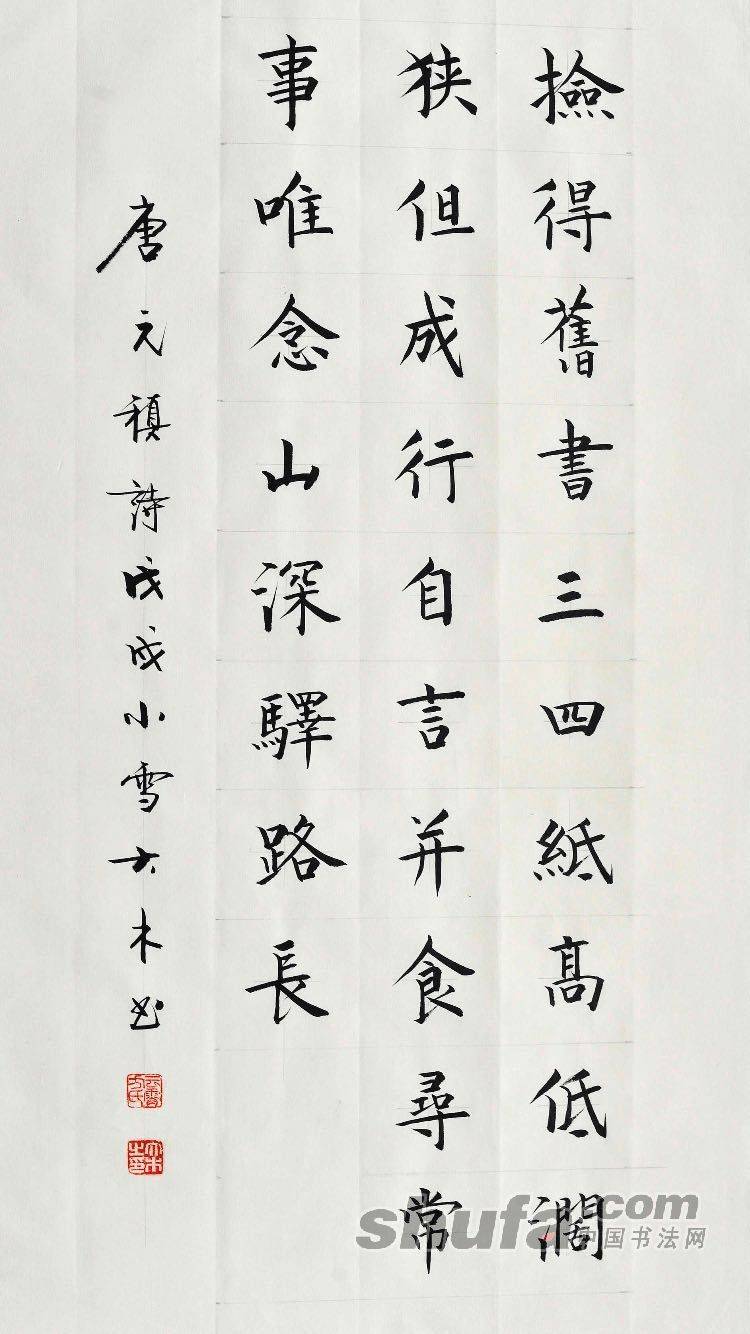 撿得舊書三四紙髙低濶
狭但成行自言并食尋常
事唯念山深驛路長
唐元稹詩戊戌小雪大木书
shufa.com
中国书法网